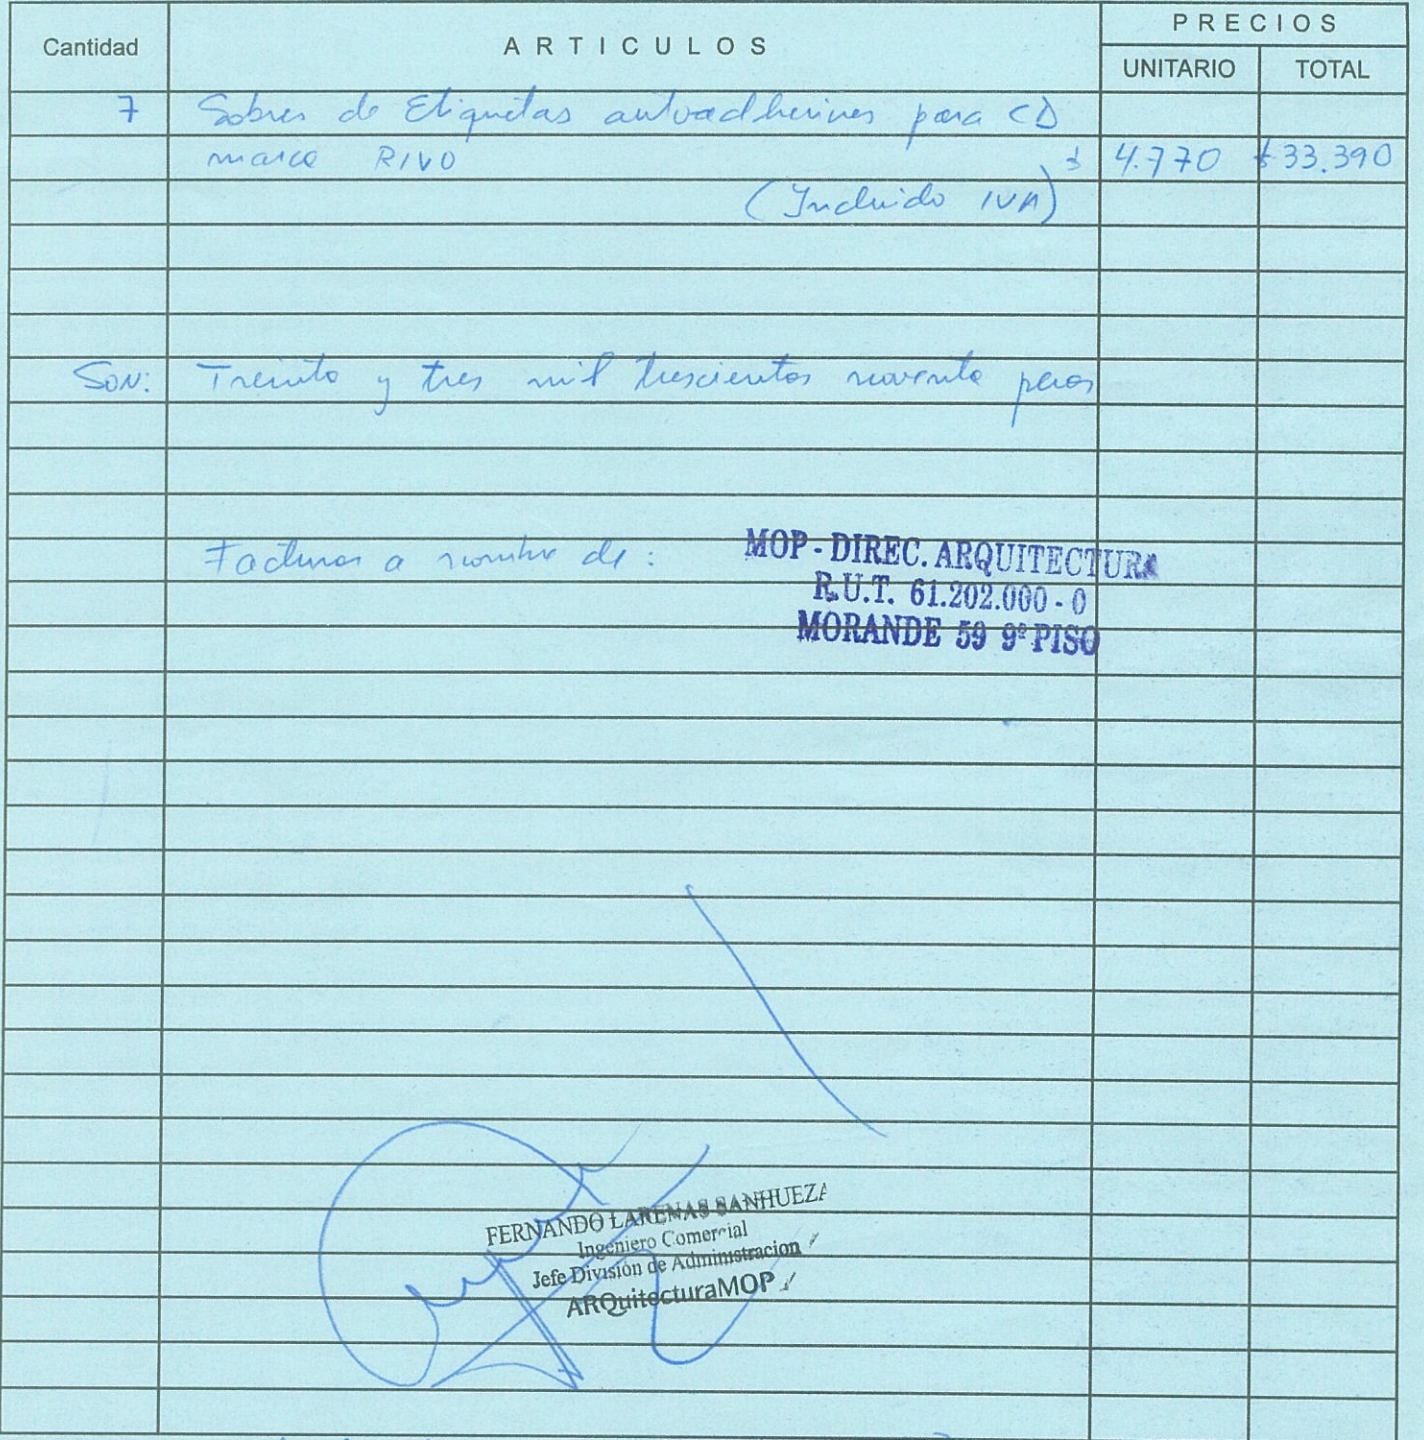 Cantidad ARTICULOS PRECIOS
UNITARIO TOTAL
7 Sobres de Etiquetas autoadherivas para CD
marca RIVO $ 4.770 $33.390
(Incluido IVA)
SON: Treinta y tres mil trescientos noventa pesos
Facturar a nombre de :
MOP - DIREC. ARQUITECTURA
R.U.T. 61.202.000 - 0
MORANDE 59 9º PISO
FERNANDO LARENAS SANHUEZA
Ingeniero Comercial
Jefe División de Administracion
ARQuitecturaMOP